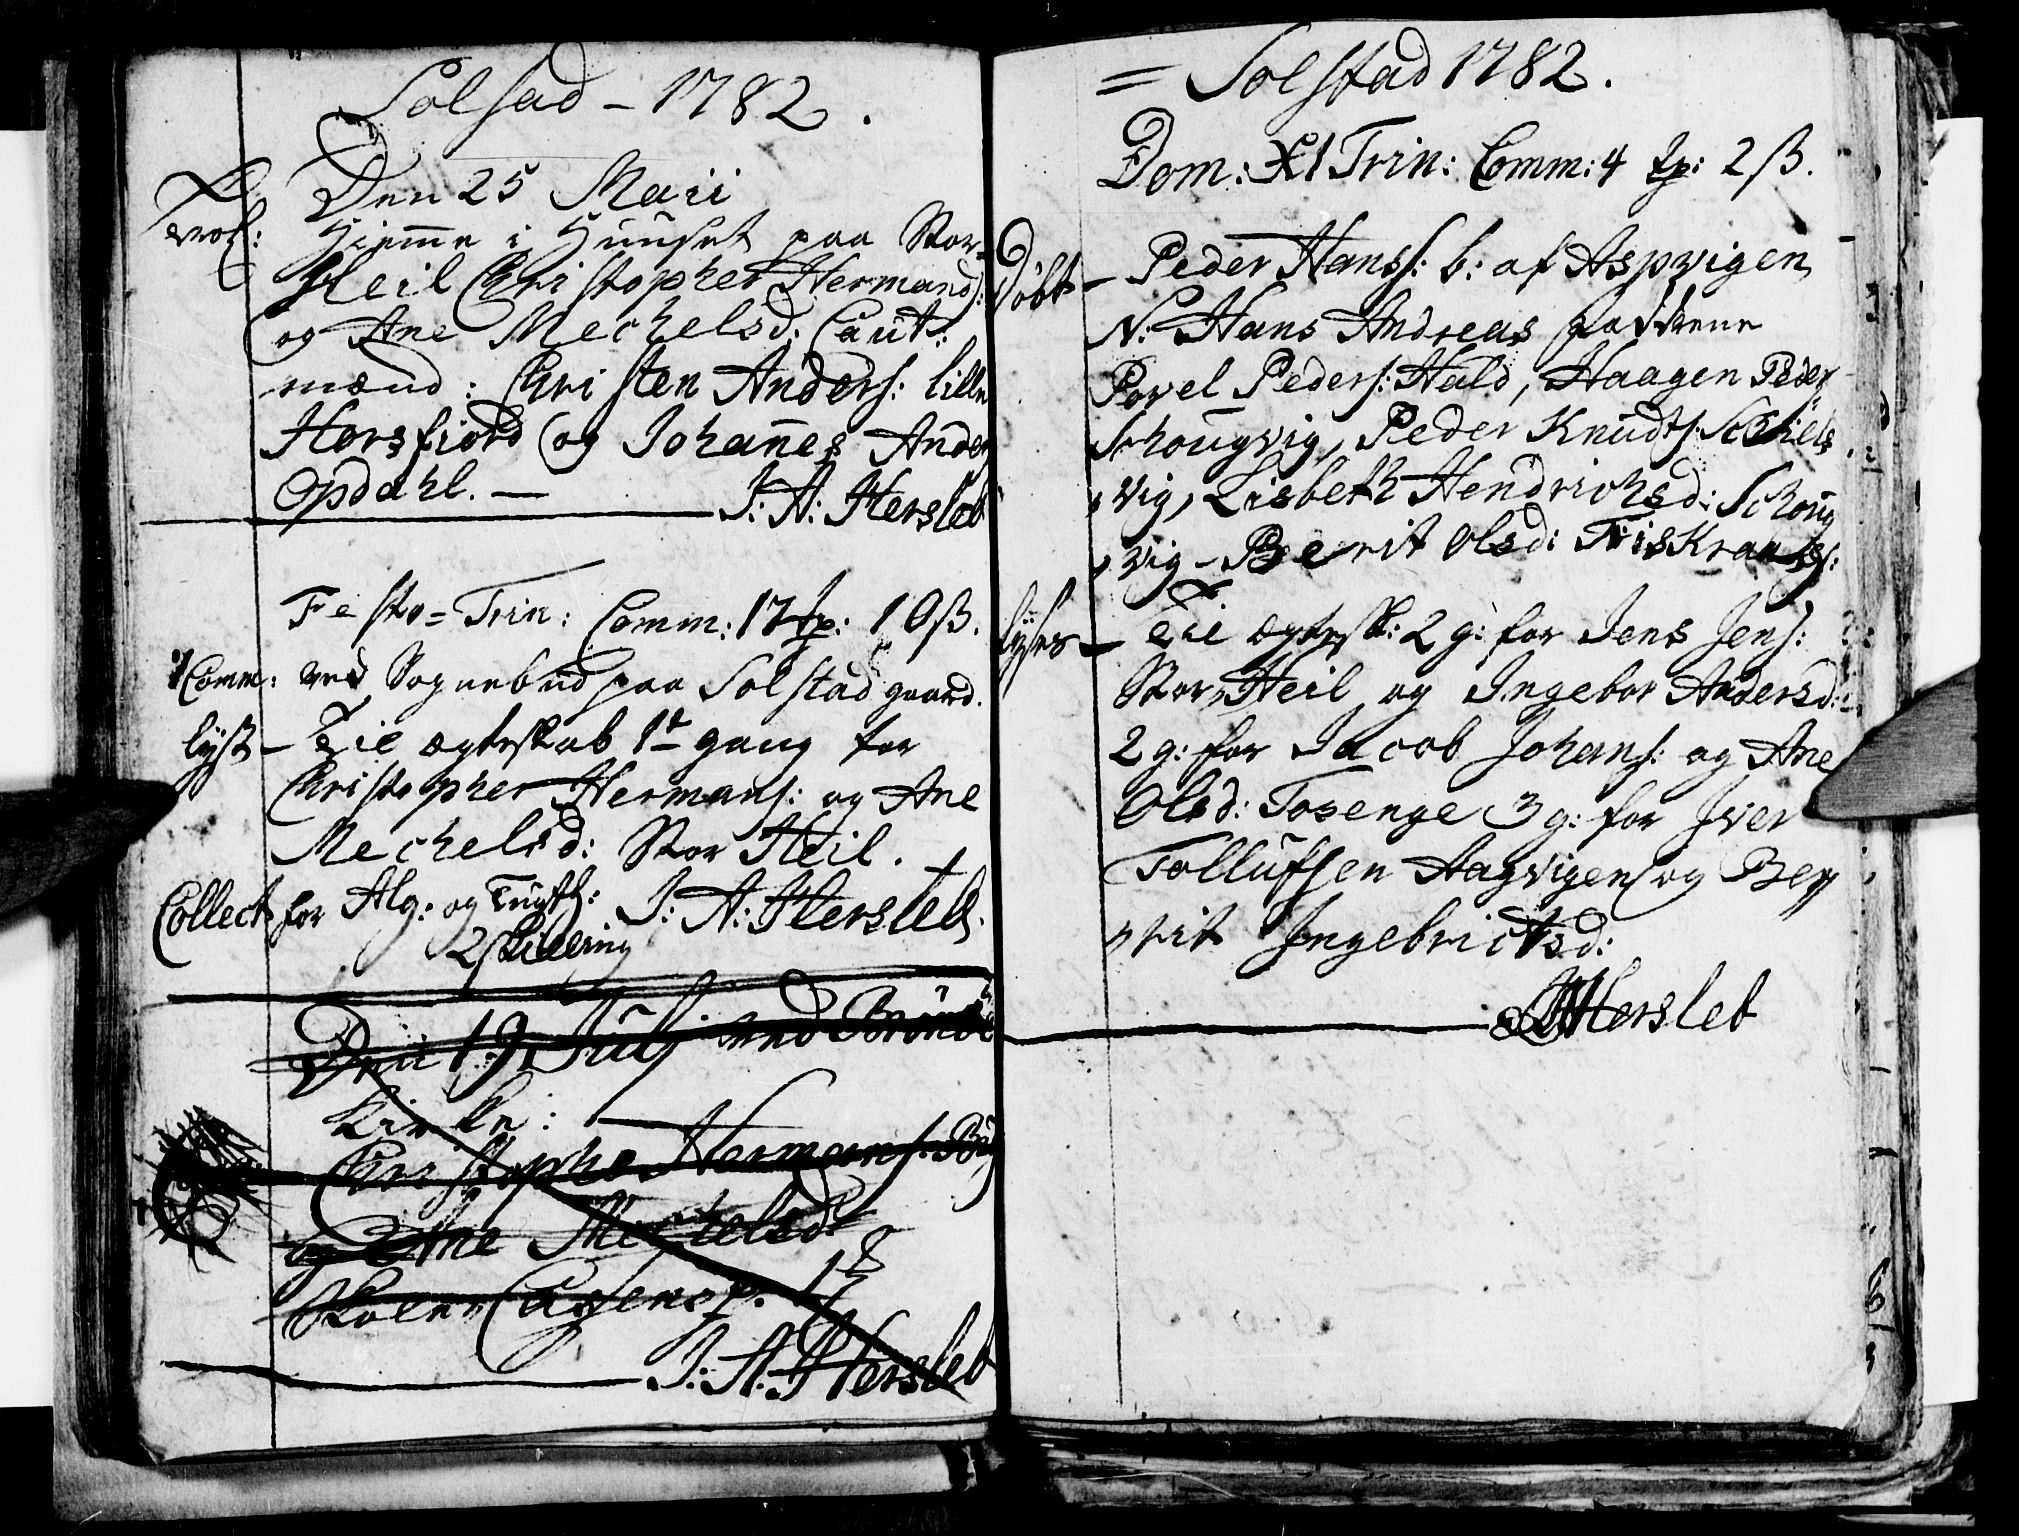 Solsad - 1782.
Den 25 Maii
Trol: Hjemme i Huuset paa Stor-
Heil Christopher Hermands:
og Ane Mechelsd: Caut:
mænd: Christen Anders: lille
Horsfiord og Johannes Anders
Opdahl. — J: A: Hersleb
Festo = Trin: Comm: 17 tp: 10 ß.
1 Comm: ved Sognebud paa Solstad gaard.
lyst – Til ægteskab 1te gang for
Christopher Hermans: og Ane
Mechelsd: Stor Heil.
Collect for Alg: og Tugth: J: A: Hersleb.
2 skilling
Den 19 Julj ved Brönöe
Kirke:
Christopher Hermans:
og Ane Mechelsd:
J: A: Hersleb
= Solstad 1782.
Dom: XI Trin: Comm: 4 tp: 2 ß.
Döbt – Peder Hanss: b: af Aspvigen
N: Hans Andreas fadderne
Povel Peders: Hald, Haagen Peders
Schougvig, Peder Knudts: Schiels
vig, Lisbeth Hendrichsd: Schoug
vig – Berit Olsd:
lyses – Til ægtesk: 2 g: for Jens Jens:
Stor Heil og Ingebor Andersd:
2 g: for Jacob Johans: og Ane
Olsd: Tosenge 3 g: for Jver
Tollufsen Aagvigen og Ber
rit Ingebrictsd:
JAHersleb